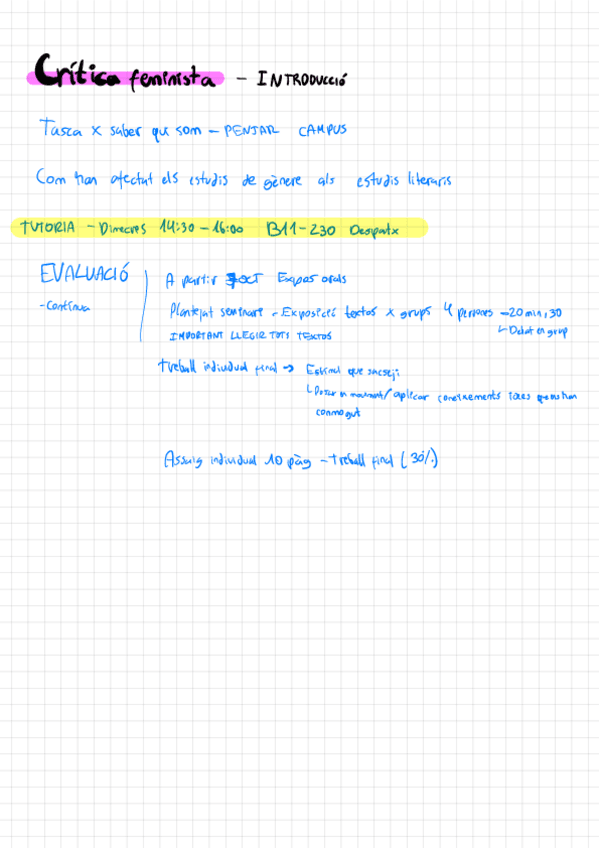 Crítica feminista - INTRODUCCIÓ
Tasca x saber qui som - PENJAR CAMPUS
Com han afectat els estudis de gènere als estudis literaris
TUTORIA - Dimecres 14:30 - 16:00 B11-230 Despatx
EVALUACIÓ
- Contínua
A partir 7 OCT Expos orals
Plantejat seminari - Exposició textos x grups 4 persones → 20 min, 30
↳ Debat en grup
IMPORTANT LLEGIR TOTS TEXTOS
treball individual final → Estímul que sacsegi
↳ Posar en moviment / aplicar coneixements idees que ens han
conmogut
Assaig individual 10 pàg - treball final (30%)